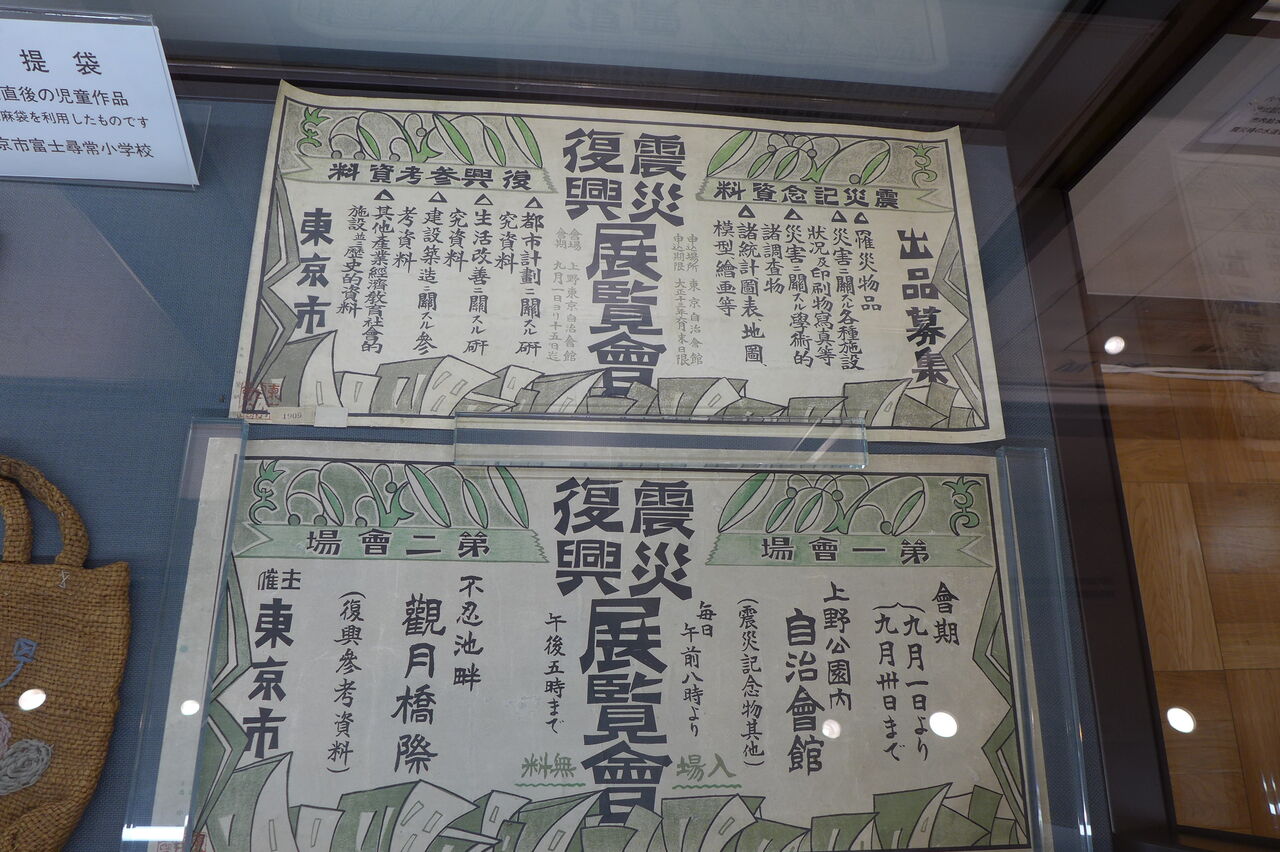 提袋
直後の児童作品
麻袋を利用したものです
京市富士尋常小学校
震災
復興
展覧會
出品募集
震災記念資料
△罹災物品
△災害ニ關スル各種施設
状況及印刷物寫真等
△災害ニ關スル學術的
諸調査物
△諸統計圖表、地圖、
模型繪画等
申込場所 東京自治會館
申込期限 大正十三年六月末日限
會場 上野東京自治會館
會期 九月一日ヨリ十五日迄
復興參考資料
△都市計劃ニ關スル研
究資料
△生活改善ニ關スル研
究資料
△建設築造ニ關スル參
考資料
△其他産業經濟教育社會的
施設並ニ歴史的資料
東京市
1909
震災
復興
展覧會
第一會場
會期
(九月一日より
九月卅日まで
上野公園内
自治會館
(震災記念物其他)
毎日
午前八時より
午後五時まで
入場
無料
第二會場
不忍池畔
觀月橋際
(復興參考資料)
主催
東京市